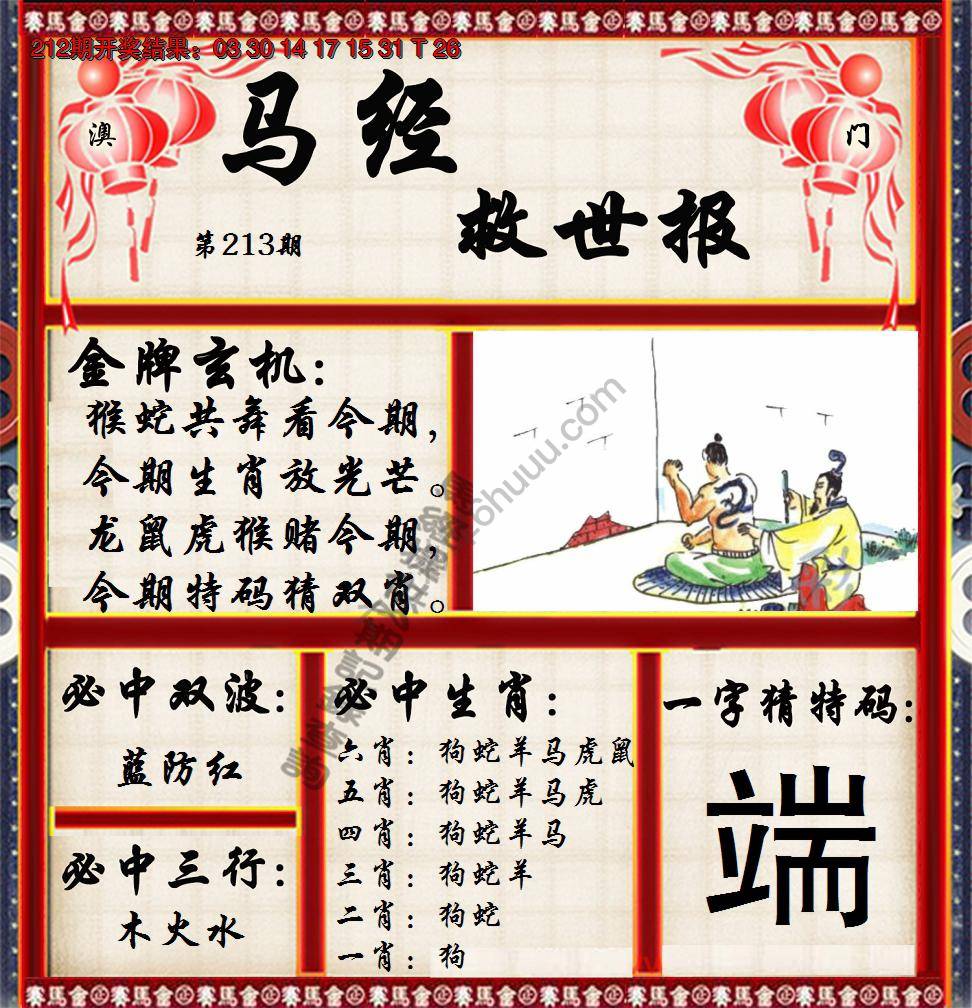 212期开奖结果：03 30 14 17 15 31 T 26
澳
门
马经
救世报
第213期
金牌玄机：
猴蛇共舞看今期，
今期生肖放光芒。
龙鼠虎猴赌今期，
今期特码猜双肖。
必中双波：
蓝防红
必中三行：
木火水
必中生肖：
六肖：狗蛇羊马虎鼠
五肖：狗蛇羊马虎
四肖：狗蛇羊马
三肖：狗蛇羊
二肖：狗蛇
一肖：狗
一字猜特码：
端